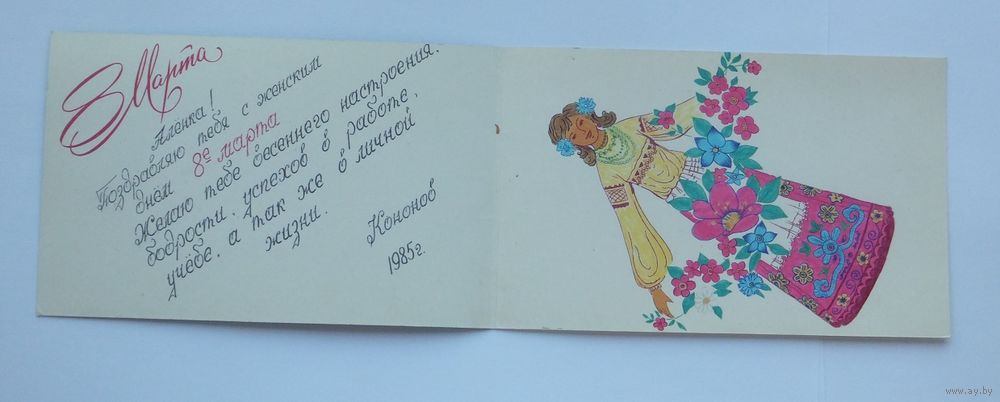 8 Марта
Алёнка!
Поздравляю тебя с женским
днём 8е марта
Желаю тебе весеннего настроения.
бодрости, успехов в работе,
учёбе, а так же в личной
жизни.
Кононов
1985г.
www.ay.by